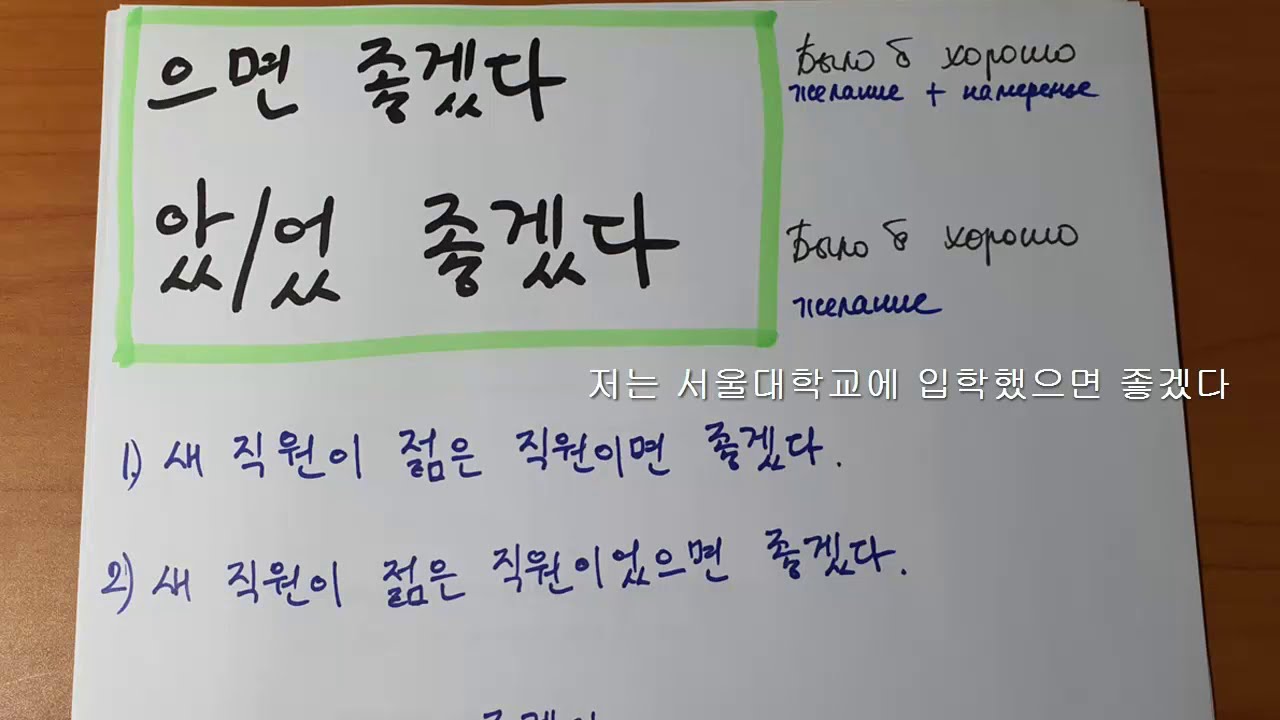 으면 좋겠다
Было б хорошо
желание + намеренье
았/었 좋겠다
Было б хорошо
желание
저는 서울대학교에 입학했으면 좋겠다
1.) 새 직원이 젊은 직원이면 좋겠다.
2) 새 직원이 젊은 직원이었으면 좋겠다.